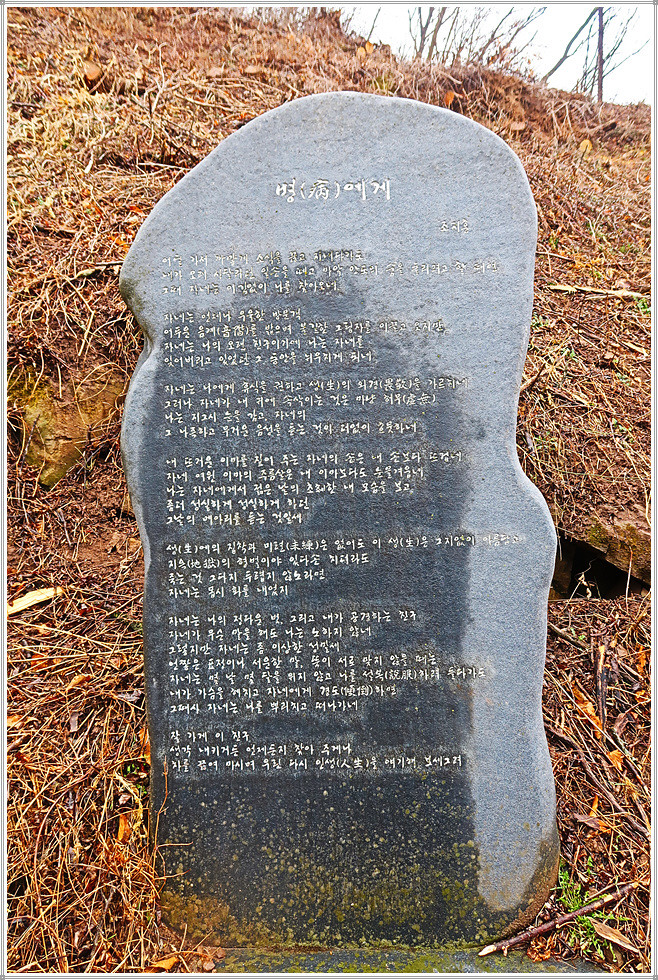 병(病)에게
조지훈
어딜 가서 까맣게 소식을 끊고 지내다가도
내가 오래 시달리던 일손을 떼고 마악 안도의 숨을 돌리려고 할 때면
그때 자네는 어김없이 나를 찾아오네.
자네는 언제나 우울한 방문객
어두운 음계(音階)를 밟으며 불길한 그림자를 이끌고 오지만
자네는 나의 오랜 친구이기에 나는 자네를
잊어버리고 있었던 그 동안을 뉘우치게 되네
자네는 나에게 휴식을 권하고 생(生)의 외경(畏敬)을 가르치네
그러나 자네가 내 귀에 속삭이는 것은 마냥 허무(虛無)
나는 지그시 눈을 감고, 자네의
그 나즉하고 무거운 음성을 듣는 것이 더없이 흐뭇하네
내 뜨거운 이마를 짚어 주는 자네의 손은 내 손보다 뜨겁네
자네 여윈 이마의 주름살은 내 이마보다도 눈물겨웁네
나는 자네에게서 젊은 날의 초췌한 내 모습을 보고
좀더 성실하게 성실하게 하던
그날의 메아리를 듣는 것일세
생(生)에의 집착과 미련(未練)은 없어도 이 생(生)은 그지없이 아름답고
지옥(地獄)의 형벌이야 있다손 치더라도
죽는 것 그다지 두렵지 않노라면
자네는 몹시 화를 내었지
자네는 나의 정다운 벗, 그리고 내가 공경하는 친구
자네가 무슨 말을 해도 나는 노하지 않네
그렇지만 자네는 좀 이상한 성밀세
언짢은 표정이나 서운한 말, 뜻이 서로 맞지 않을 때는
자네는 몇 날 몇 달을 쉬지 않고 나를 설복(說服)하려 들다가도
내가 가슴을 헤치고 자네에게 경도(傾倒)하면
그때사 자네는 나를 뿌리치고 떠나가네
잘 가게 이 친구
생각 내키거든 언제든지 찾아 주게나
차를 끓여 마시며 우린 다시 인생(人生)을 얘기해 보세그려